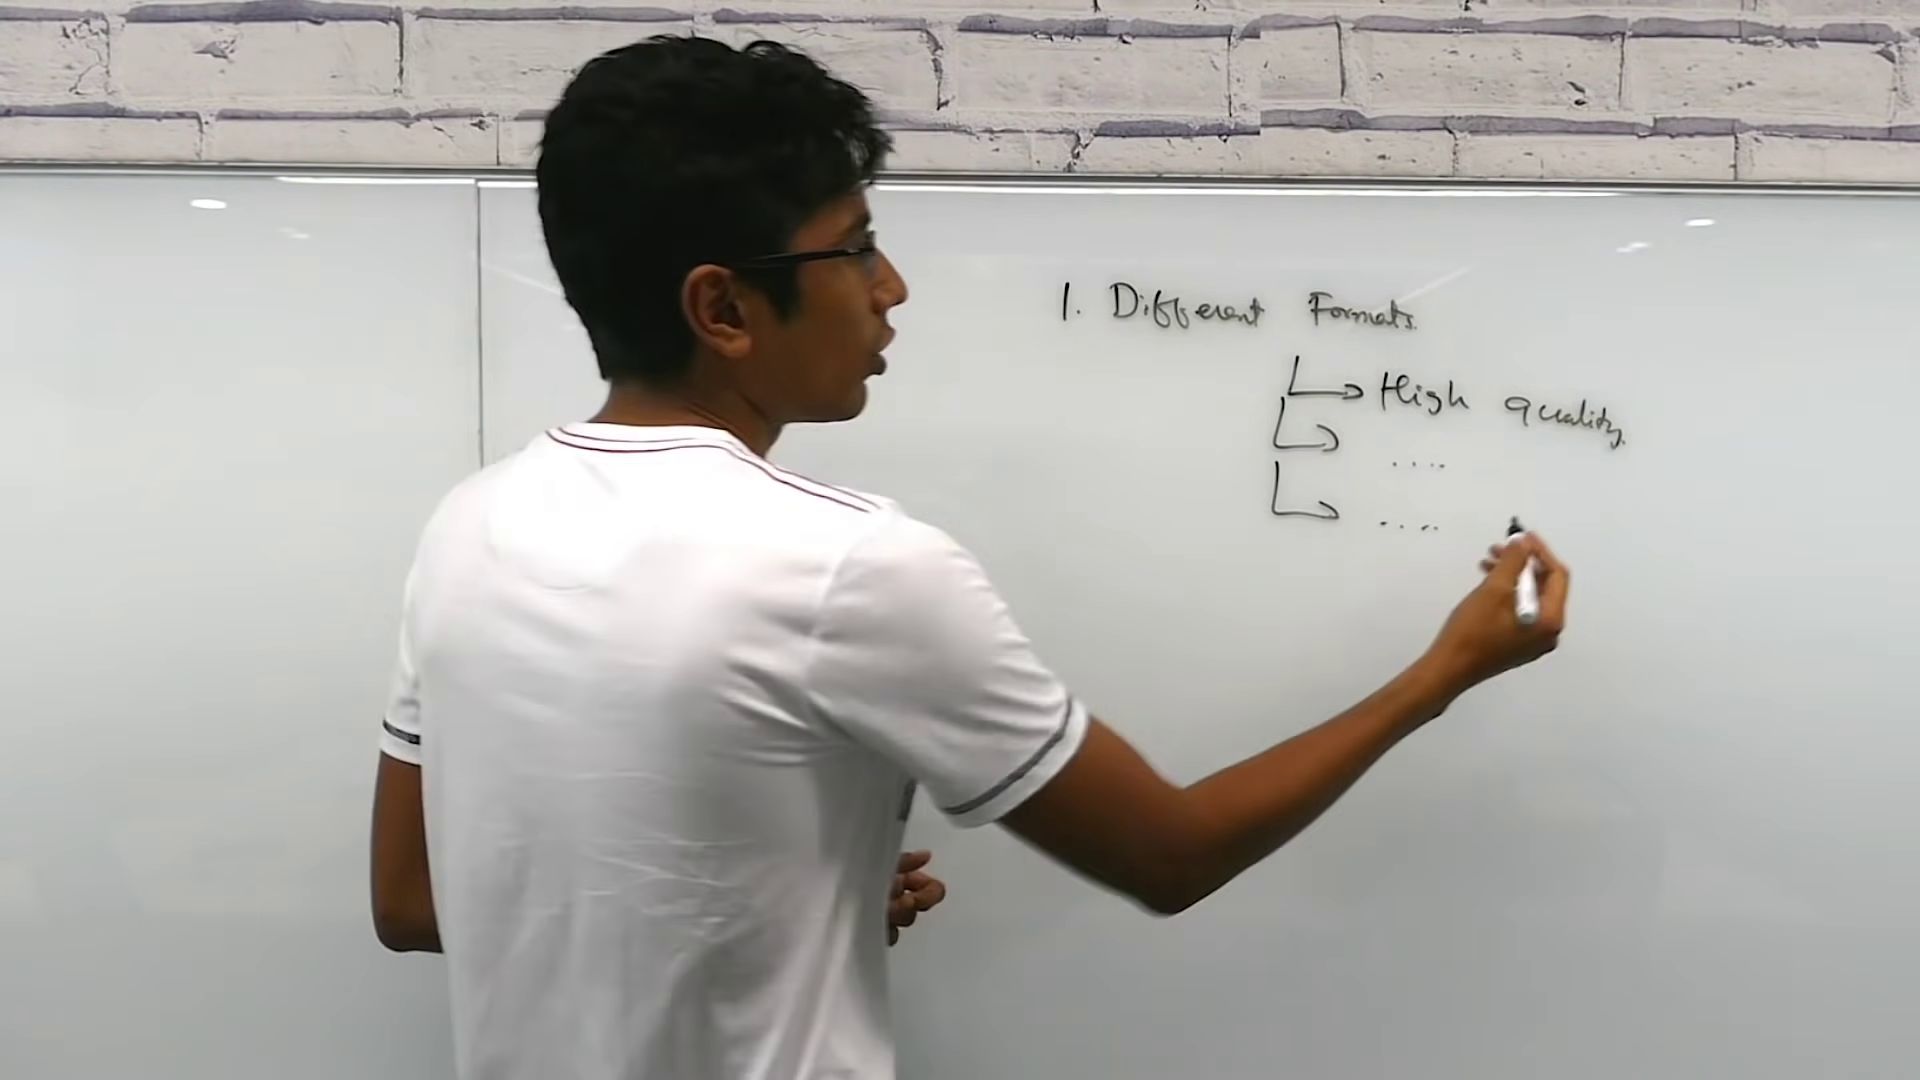 1. Different Formats.
High quality.
....
....